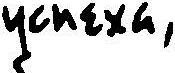 успеха,